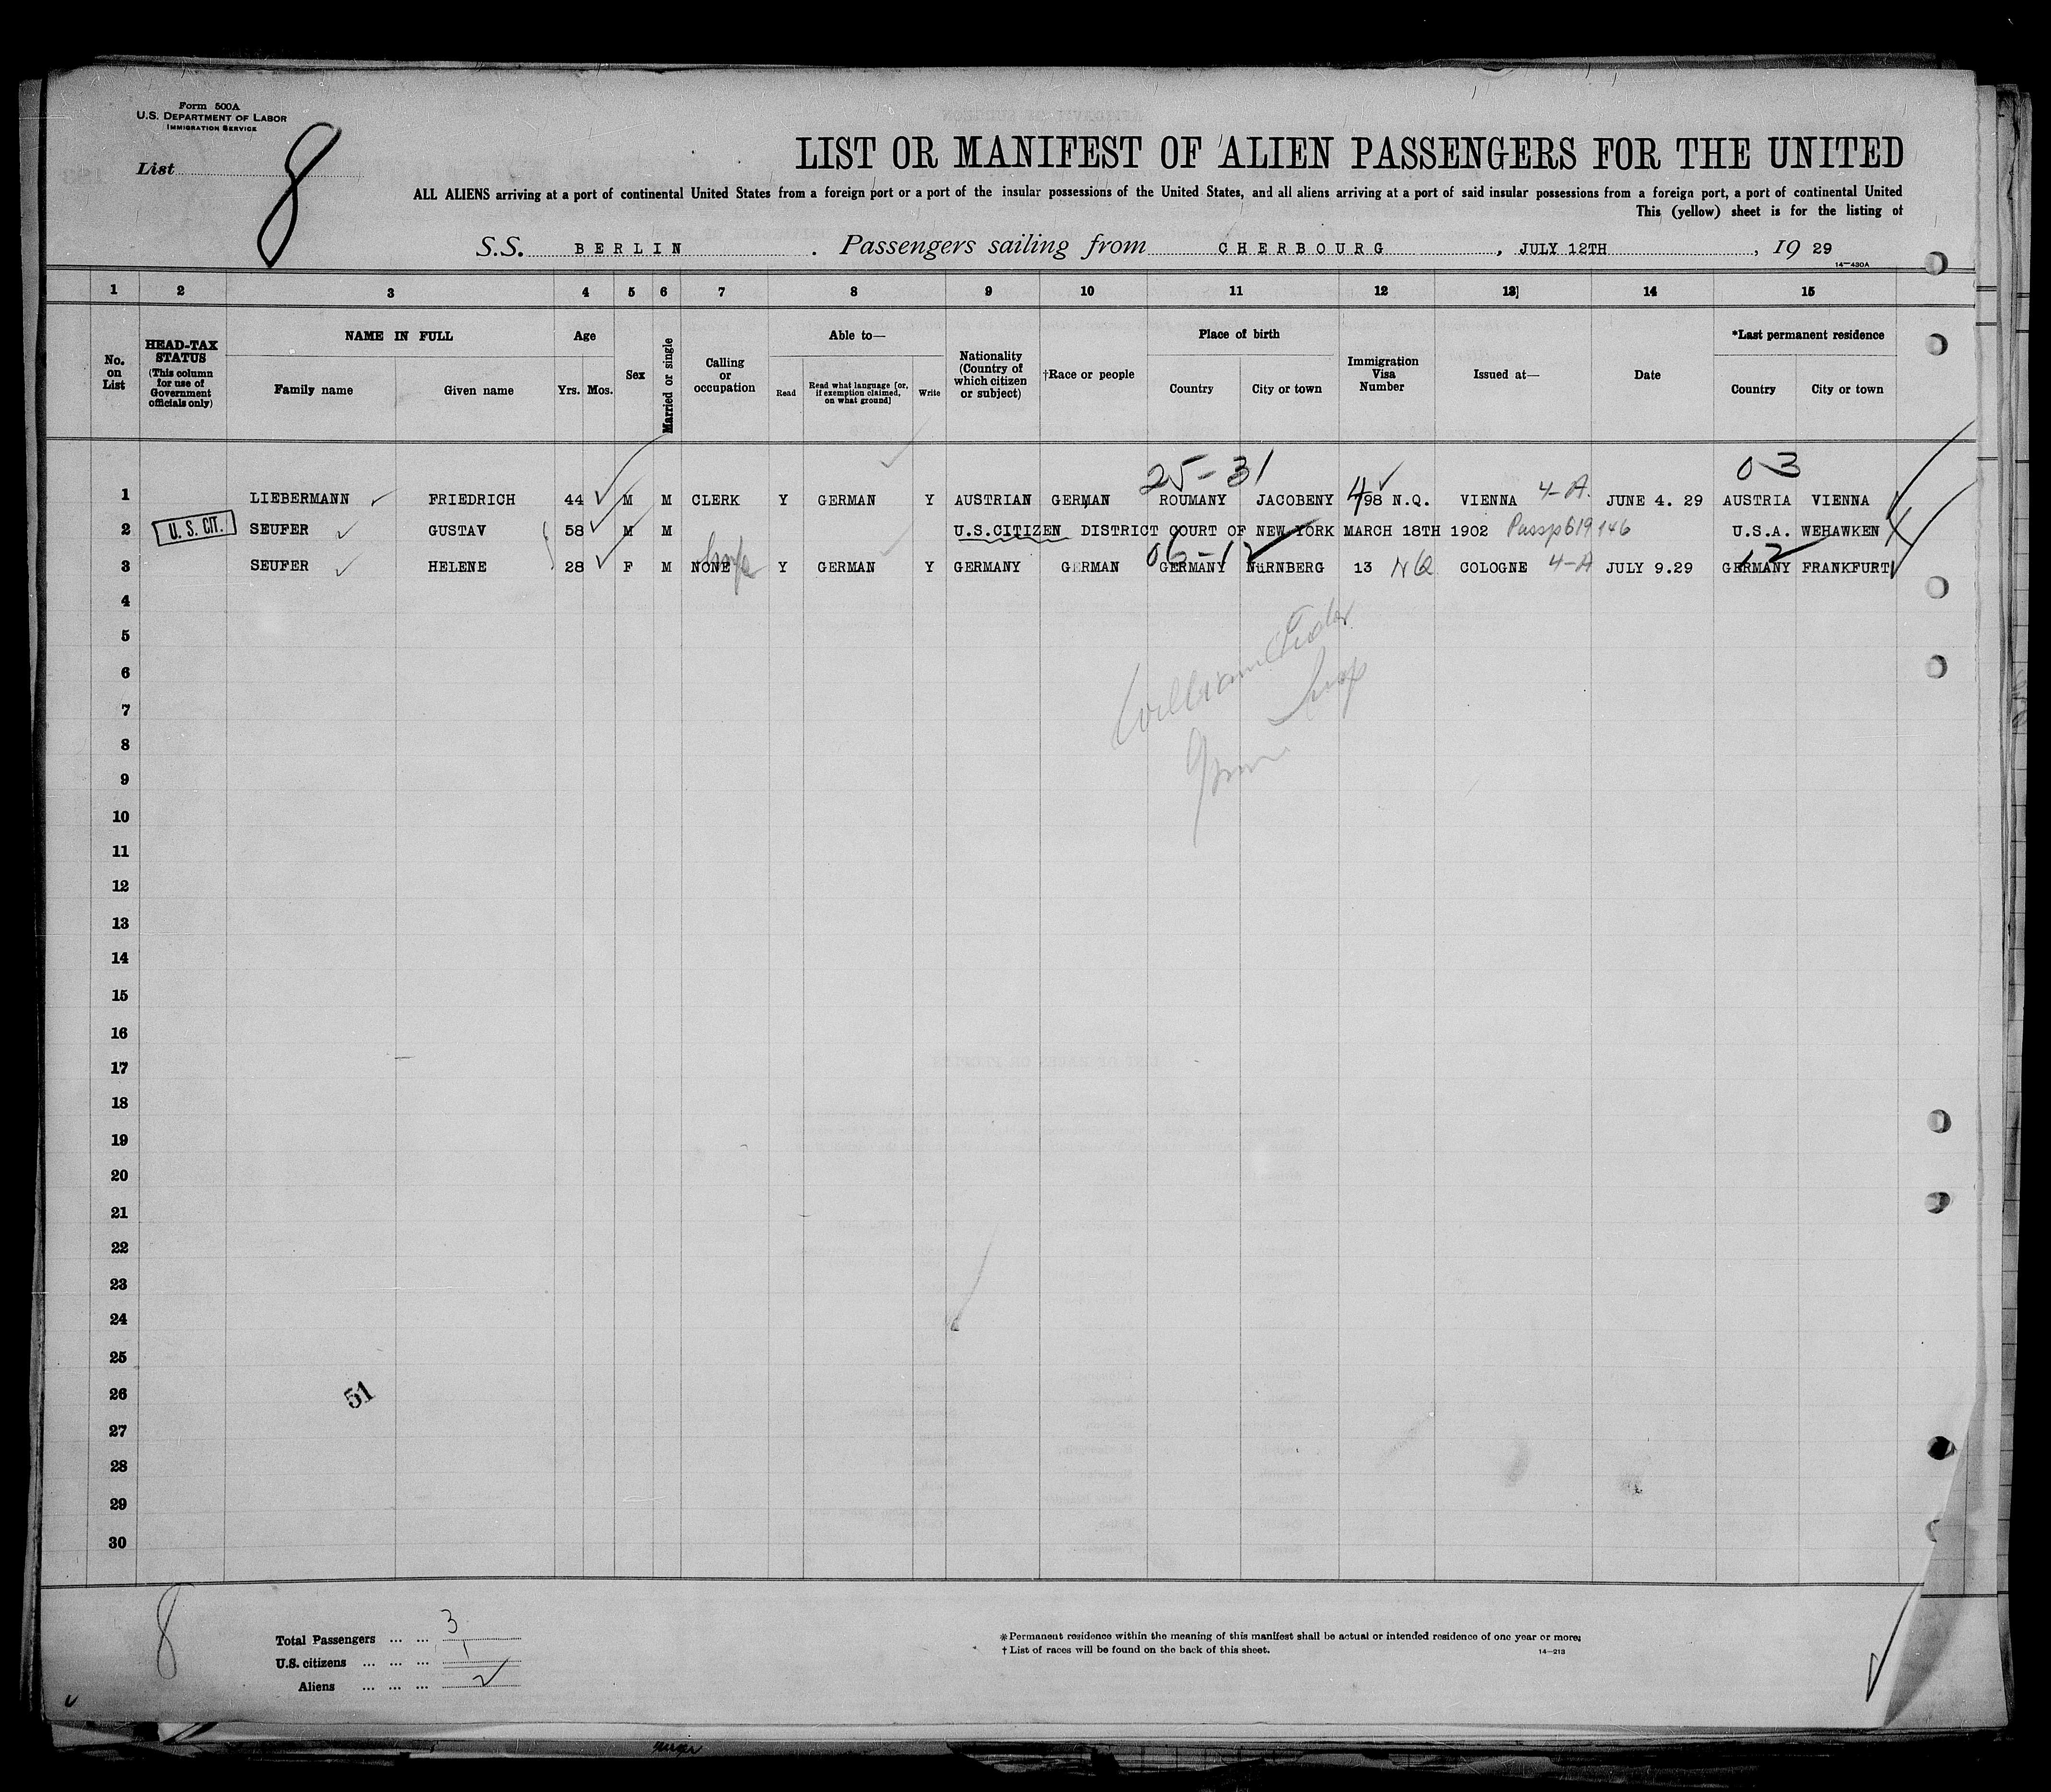 Form 500A
U.S. DEPARTMENT OF LABOR
IMMIGRATION SERVICE
List 8
LIST OR MANIFEST OF ALIEN PASSENGERS FOR THE UNITED
ALL ALIENS arriving at a port of continental United States from a foreign port or a port of the insular possessions of the United States, and all aliens arriving at a port of said insular possessions from a foreign port, a port of continental United
This (yellow) sheet is for the listing of
S.S. BERLIN . Passengers sailing from CHERBOURG , JULY 12TH , 19 29
14—430A
1 2 3 4 5 6 7 8 9 10 11 12 13 14 15
No. on List
HEAD-TAX STATUS (This column for use of Government officials only)
NAME IN FULL
Family name Given name
Age
Yrs. Mos.
Sex
Married or single
Calling or occupation
Able to—
Read Read what language [or, if exemption claimed, on what ground] Write
Nationality (Country of which citizen or subject)
†Race or people
Place of birth
Country City or town
Immigration Visa Number
Issued at—
Date
*Last permanent residence
Country City or town
25-31 03
1 LIEBERMANN FRIEDRICH 44 M M CLERK Y GERMAN Y AUSTRIAN GERMAN ROUMANY JACOBENY 498 N.Q. VIENNA 4-A. JUNE 4. 29 AUSTRIA VIENNA
2 U.S. CIT. SEUFER GUSTAV 58 M M U.S.CITIZEN DISTRICT COURT OF NEW YORK MARCH 18TH 1902 Passp 619146 U.S.A. WEHAWKEN
12
3 SEUFER HELENE 28 F M NONE Y GERMAN Y GERMANY GERMAN GERMANY NüRNBERG 13 NQ COLOGNE 4-A JULY 9.29 GERMANY FRANKFURT
4
5
6 William
7 Insp
8
9
10
11
12
13
14
15
16
17
18
19
20
21
22
23
24
25
26 51
27
28
29
30
8
Total Passengers ... ... 3
U.S. citizens ... ... ... 1
Aliens ... ... ...
*Permanent residence within the meaning of this manifest shall be actual or intended residence of one year or more.
†List of races will be found on the back of this sheet.
14—213